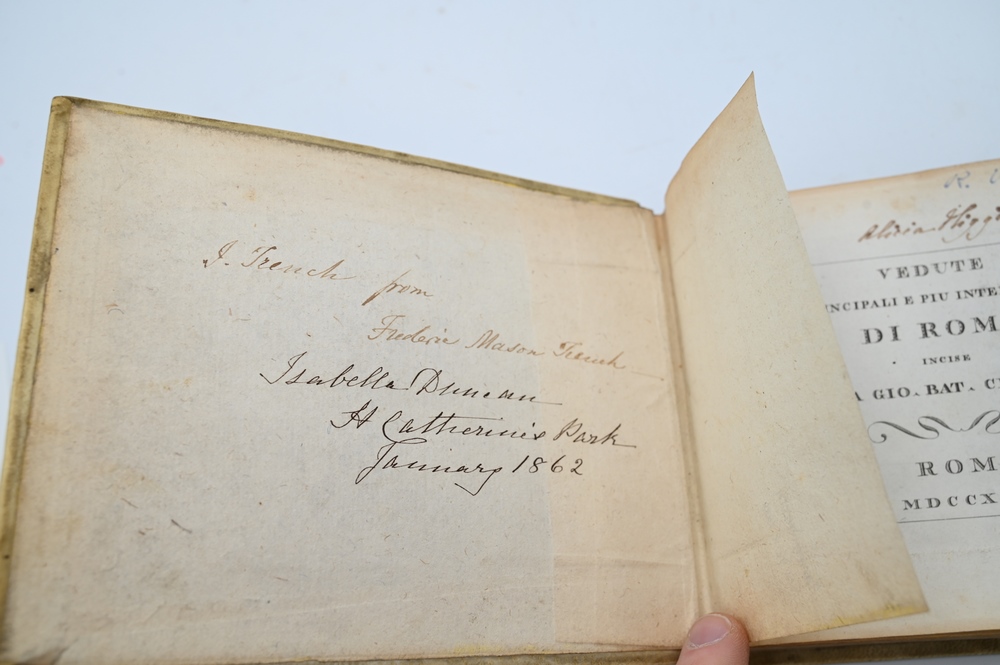 J. Trench from
Frederic Mason Trench
Isabella Duncan
St Catherine's Park
January 1862
R.
Alicia Higg
VEDUTE
NCIPALI E PIU INTE
DI ROM
INCISE
A GIO. BAT. C
ROM
MDCCX